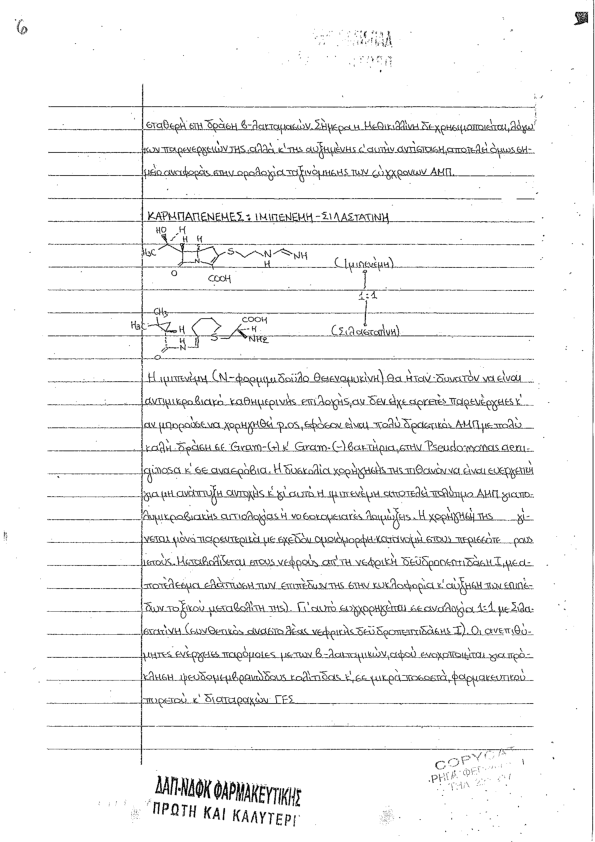 6
σταθερή στη δράση β-λακταμασών. Σήμερα η Μεθικιλλίνη δε χρησιμοποιείται, λόγω
των παρενεργειών της, αλλά κ' της αυξημένης σ' αυτήν αντίστασης, αποτελεί όμως ση-
μείο αναφοράς στην ορολογία ταξινόμησης των σύγχρονων ΑΜΠ.
ΚΑΡΜΠΑΠΕΝΕΜΕΣ: ΙΜΙΠΕΝΕΜΗ-ΣΙΛΑΣΤΑΤΙΝΗ
HO H
H₃C H H S N NH
N H
O COOH
(Ιμιπενέμη)
1:1
CH₃
H₃C H COOH
S H
NH₂
N
O H
(Σιλαστατίνη)
Η ιμιπενέμη (Ν-φορμιμιδοϋλο θειεναμυκίνη) θα ήταν δυνατόν να είναι
αντιμικροβιακό καθημερινής επιλογής, αν δεν είχε αρκετές παρενέργειες κ'
αν μπορούσε να χορηγηθεί p.os, εφόσον είναι πολύ δραστικό ΑΜΠ με πολύ
καλή δράση σε Gram-(+) κ' Gram-(-) βακτήρια, στην Pseudomonas aeru-
ginosa κ' σε αναερόβια. Η δυσκολία χορήγησής της πιθανόν να είναι ευεργετική
για μη ανάπτυξη αντοχής κ' γι' αυτό η ιμιπενέμη αποτελεί πολύτιμο ΑΜΠ για πο-
λυμικροβιακής αιτιολογίας ή νοσοκομειακές λοιμώξεις. Η χορήγησή της γί-
νεται μόνο παρεντερικά με σχεδόν ομοιόμορφη κατανομή στους περισσότε ρους
ιστούς. Μεταβολίζεται στους νεφρούς απ' τη νεφρική δεϋδροπεπτιδάση Ι, με α-
ποτέλεσμα ελάττωση των επιπέδων της στην κυκλοφορία κ' αύξηση των επιπέ-
δων τοξικού μεταβολίτη της). Γι' αυτό συγχορηγείται σε αναλογία 1:1 με Σιλα-
στατίνη (συνθετικός αναστολέας νεφρικής δεϋδροπεπτιδάσης Ι). Οι ανεπιθύ-
μητες ενέργειες παρόμοιες με των β-λακταμικών, αφού ενοχοποιείται για πρό-
κληση ψευδομεμβρανώδους κολίτιδας κ', σε μικρά ποσοστά, φαρμακευτικού
πυρετού κ' διαταραχών ΓΕΣ
COPYCAT
ΔΑΠ-ΝΔΦΚ ΦΑΡΜΑΚΕΥΤΙΚΗΣ
ΠΡΩΤΗ ΚΑΙ ΚΑΛΥΤΕΡΗ